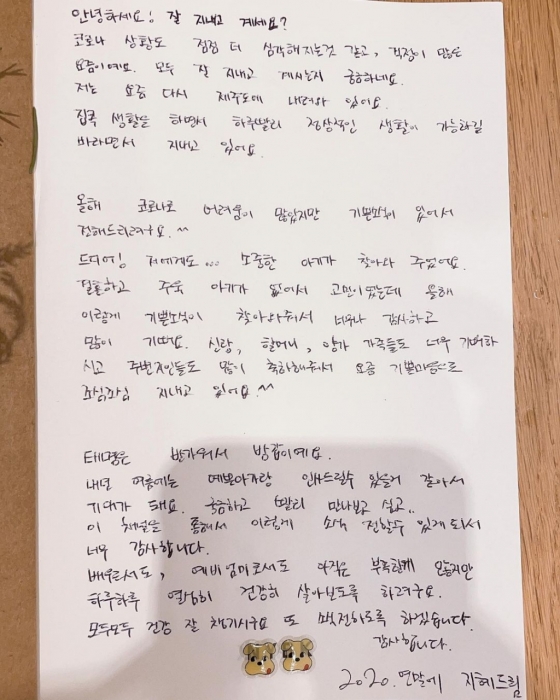 안녕하세요! 잘 지내고 계세요?
코로나 상황도 점점 더 심각해지는것 같고, 걱정이 많은
요즘이예요. 모두 잘 지내고 계시는지 궁금하네요.
저는 요즘 다시 제주도에 내려와 있어요.
집콕 생활을 하면서 하루빨리 정상적인 생활이 가능하길
바라면서 지내고 있어요.
올해 코로나로 어려움이 많았지만 기쁜소식이 있어서
전해드리려구요.^^
드디어! 저에게도... 소중한 아기가 찾아와 주었어요.
결혼하고 주욱 아기가 없어서 고민이었는데 올해
이렇게 기쁜소식이 찾아와줘서 너무나 감사하고
많이 기뻐요. 신랑, 할머니, 양가 가족들도 너무 기뻐하
시고 주변지인들도 많이 축하해주셔서 요즘 기쁜마음으로
조심조심 지내고 있어요.^^
태명은 반가워서 방갑이예요.
내년 여름에는 예쁜아가랑 인사드릴수 있을거 같아서
기대가 돼요. 궁금하고 빨리 만나보고 싶고..
이 채널을 통해서 이렇게 소식 전할수 있게되서
너무 감사합니다.
배우로서도, 예비엄마로서도 아직은 부족한게 많지만
하루하루 열심히 건강히 살아보도록 하려구요.
모두모두 건강 잘 챙기시구요 또 소식전하도록 하겠습니다.
감사합니다.
2020. 연말에 지혜드림